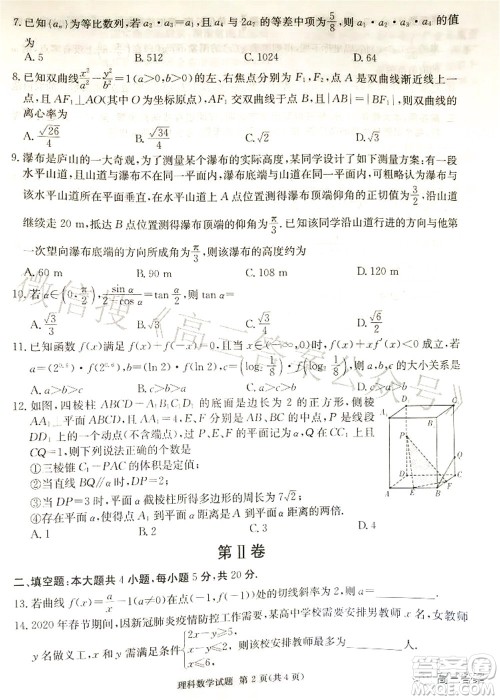 7. 已知{aₙ}为等比数列,若a₂·a₃=a₁,且a₄与2a₇的等差中项为5/8,则a₁·a₂·a₃·a₄的值
为
A. 5 B. 512 C. 1024 D. 64
8. 已知双曲线x²/a²-y²/b²=1(a>0,b>0)的左、右焦点分别为F₁,F₂,点A是双曲线渐近线上一
点,且AF₁⊥AO(其中O为坐标原点),AF₁交双曲线于点B,且|AB|=|BF₁|,则双曲线的
离心率为
A. √26/4 B. √34/4 C. √2 D. √5
9. 瀑布是庐山的一大奇观,为了测量某个瀑布的实际高度,某同学设计了如下测量方案:有一段
水平山道,且山道与瀑布不在同一平面内,瀑布底端与山道在同一平面内,可粗略认为瀑布与
该水平山道所在平面垂直,在水平山道上A点位置测得瀑布顶端仰角的正切值为3/2,沿山道
继续走20 m,抵达B点位置测得瀑布顶端的仰角为π/3.已知该同学沿山道行进的方向与他第
一次望向瀑布底端的方向所成角为π/3,则该瀑布的高度约为
A. 60 m B. 90 m C. 108 m D. 120 m
10. 若α∈(0,π/2),
A. √3/3 B. √3
11. 已知函数f(x)满足f(x)=f(-x),且当x∈(-∞,0]时,f(x)+xf′(x)<0成立,若
的大小关系是
A. a>b>c B. c>b>a C. a>c>b D. c>a>b
12. 如图,四棱柱ABCD-A₁B₁C₁D₁的底面是边长为2的正方形,侧棱
AA₁⊥平面ABCD,且AA₁=4,E、F分别是AB、BC的中点,P是线段
DD₁上的一个动点(不含端点),过P、E、F的平面记为α,Q在CC₁上且
CQ=1,则下列说法正确的个数是
①三棱锥C₁-PAC的体积是定值;
②当直线BQ∥α时,DP=2;
③当DP=3时,平面α截棱柱所得多边形的周长为7√2;
A. 0 B. 1 C. 2 D. 3
A₁ B₁ C₁
P
Q
D C
A E B F
第Ⅱ卷
二、填空题:本大题共4小题,每小题5分,共20分.
13. 若曲线f(x)=
14. 2020年春节期间,因新冠肺炎疫情防控工作需要,某高中学校需要安排男教师x名,女教师
理科数学试题 第2页(共4页)
微信搜《高三答案公众号》